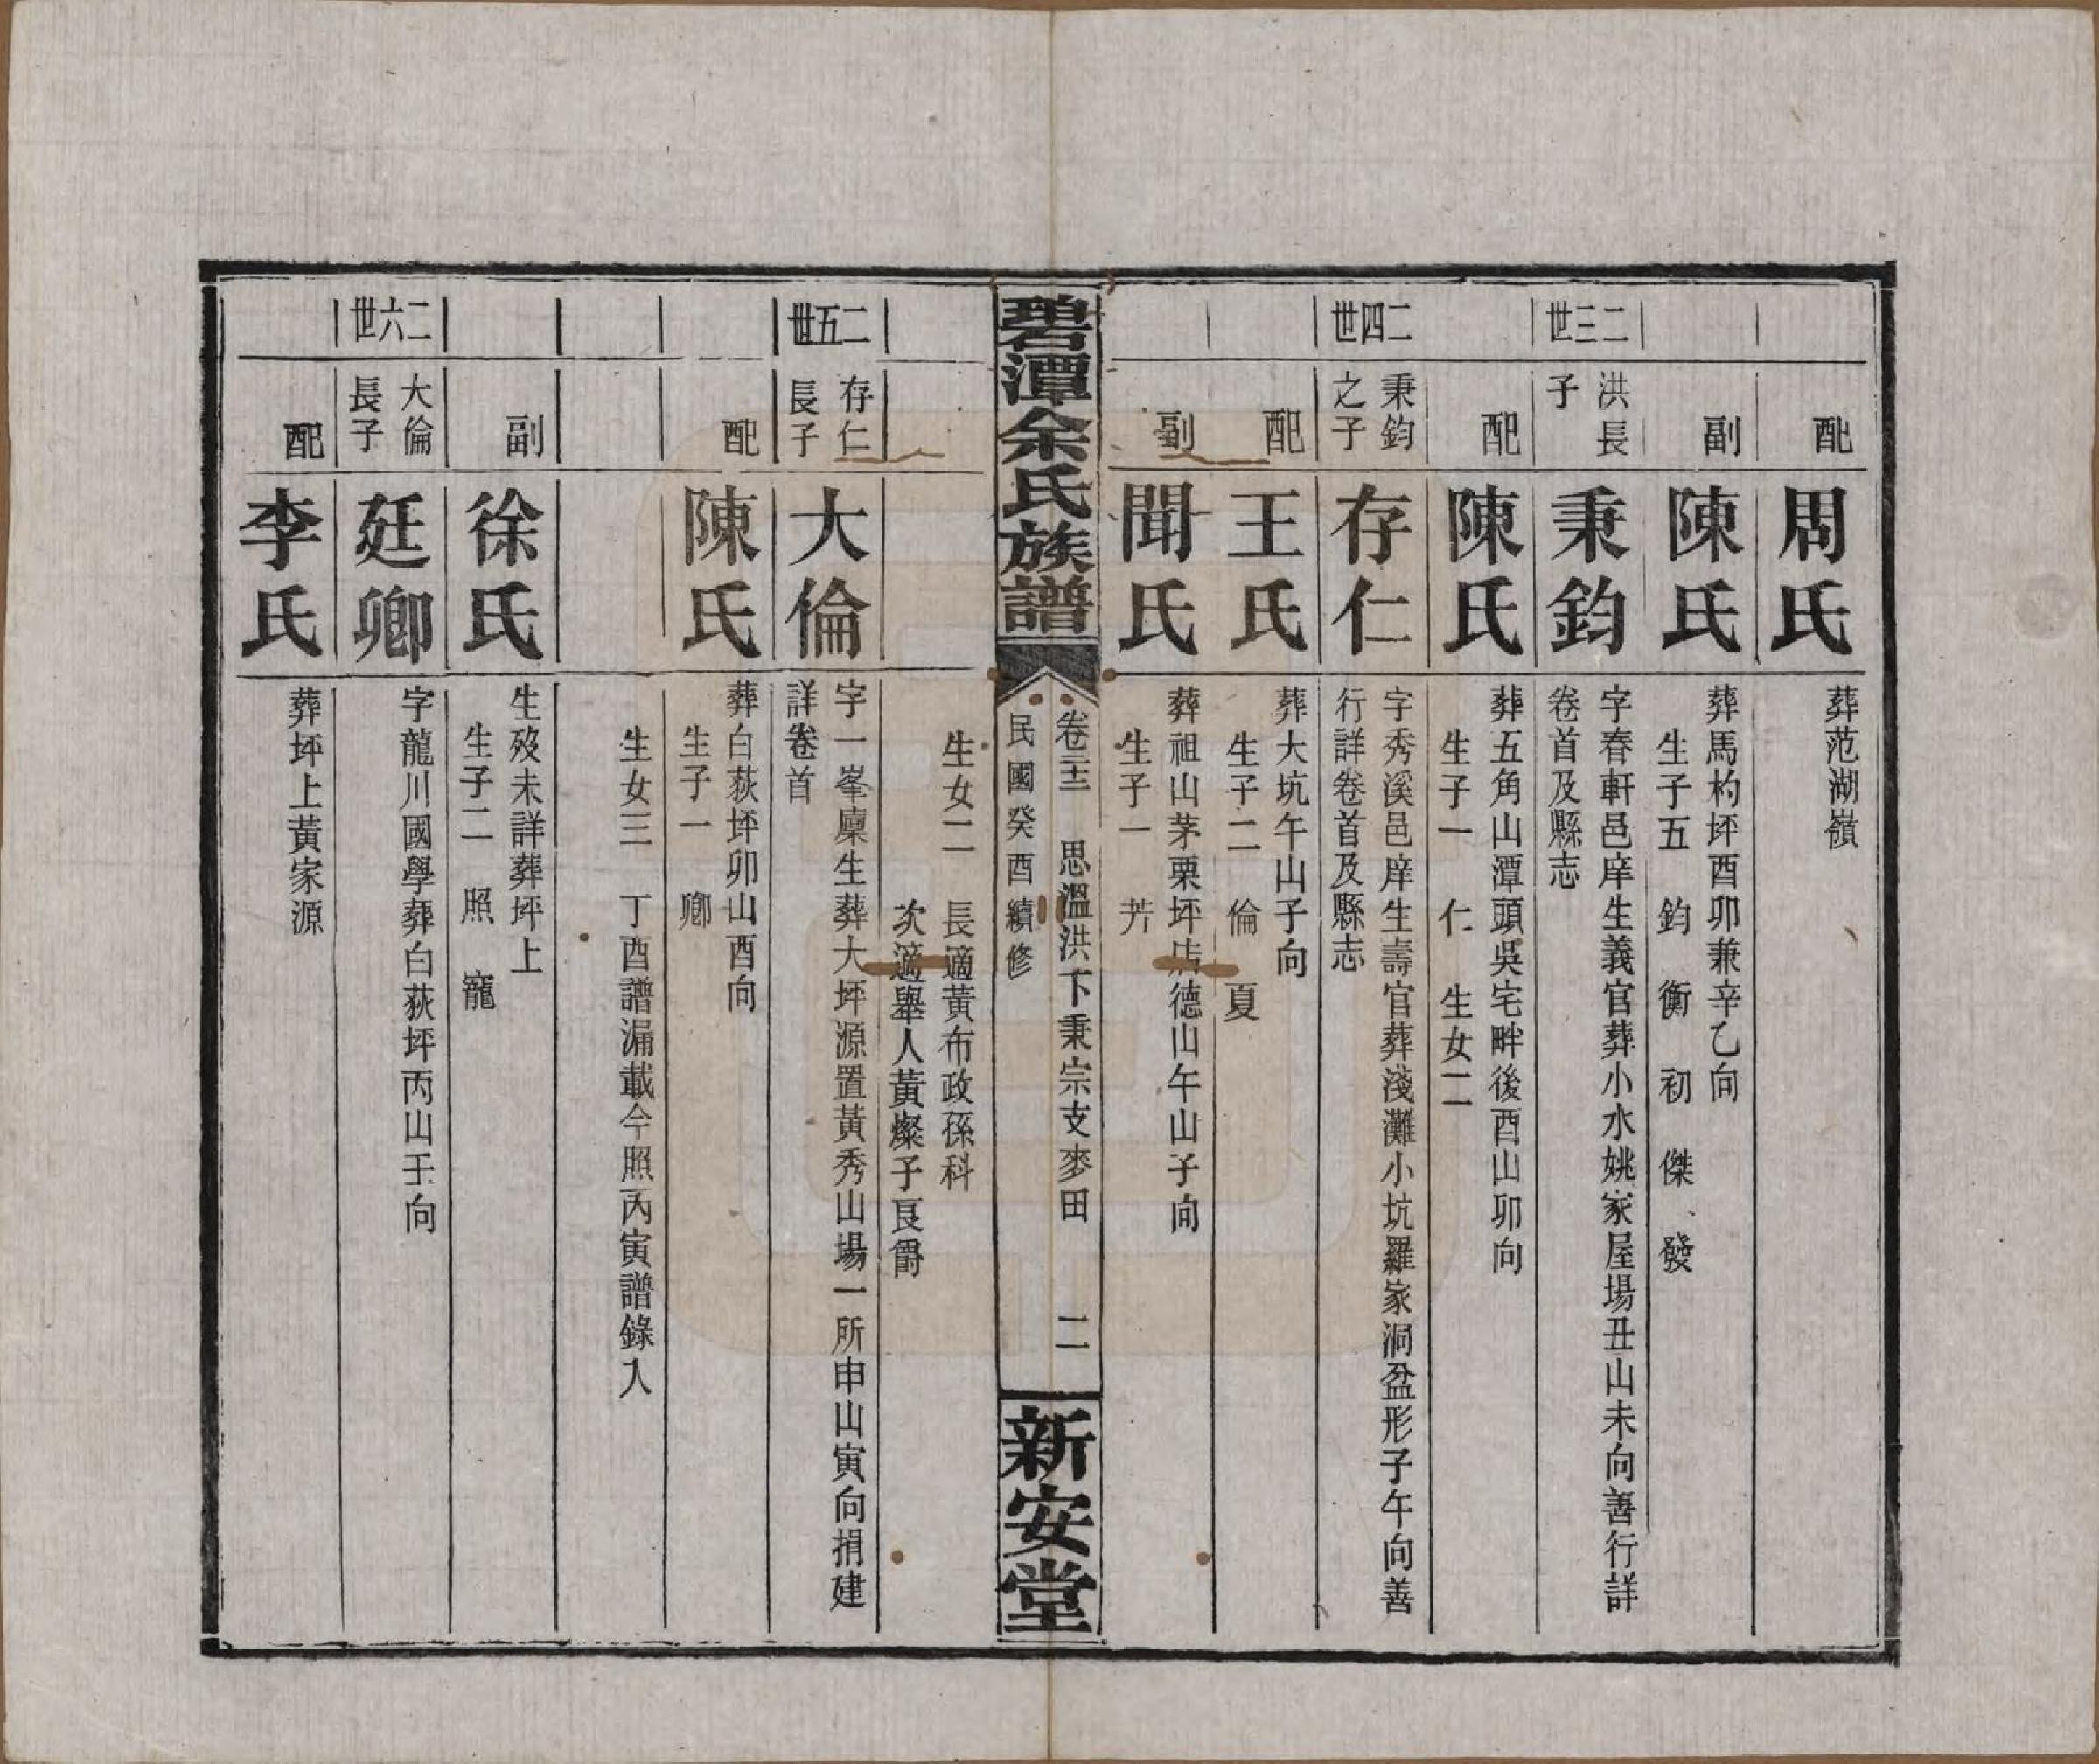 配
周氏
葬范湖嶺
副
陳氏
葬馬杓坪酉卯兼辛乙向
生子五　鈞　衡　初　傑　發
二三世
洪長
子
秉鈞
字春軒邑庠生義官葬小水姚家屋場丑山未向善行詳
卷首及縣志
配
陳氏
葬五角山潭頭吳宅畔後酉山卯向
生子一　仁　生女二
二四世
秉鈞
之子
存仁
字秀溪邑庠生壽官葬淺灘小坑羅家洞盆形子午向善
行詳卷首及縣志
配
王氏
葬大坑午山子向
生子二　倫　夏
副
聞氏
葬祖山茅栗坪店德山午山子向
生子一　芳
碧潭余氏族譜
卷三　思溫洪下秉宗支麥田　二
民國癸酉續修
新安堂
生女二　長適黃布政孫科
次適舉人黃燦子良爵
二五世
存仁
長子
大倫
字一峯廩生葬大坪源置黃秀山場一所申山寅向捐建
詳卷首
配
陳氏
葬白荻坪卯山酉向
生子一　卿
生女三　丁酉譜漏載今照丙寅譜錄入
副
徐氏
生歿未詳葬坪上
生子二　照　寵
二六世
大倫
長子
廷卿
字龍川國學葬白荻坪丙山壬向
配
李氏
葬坪上黃家源